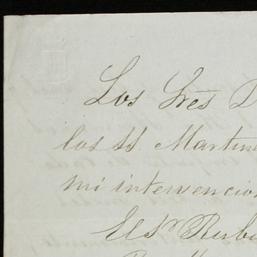 Los Tres D
los SS Martin
mi intervencion
El Sr Rub